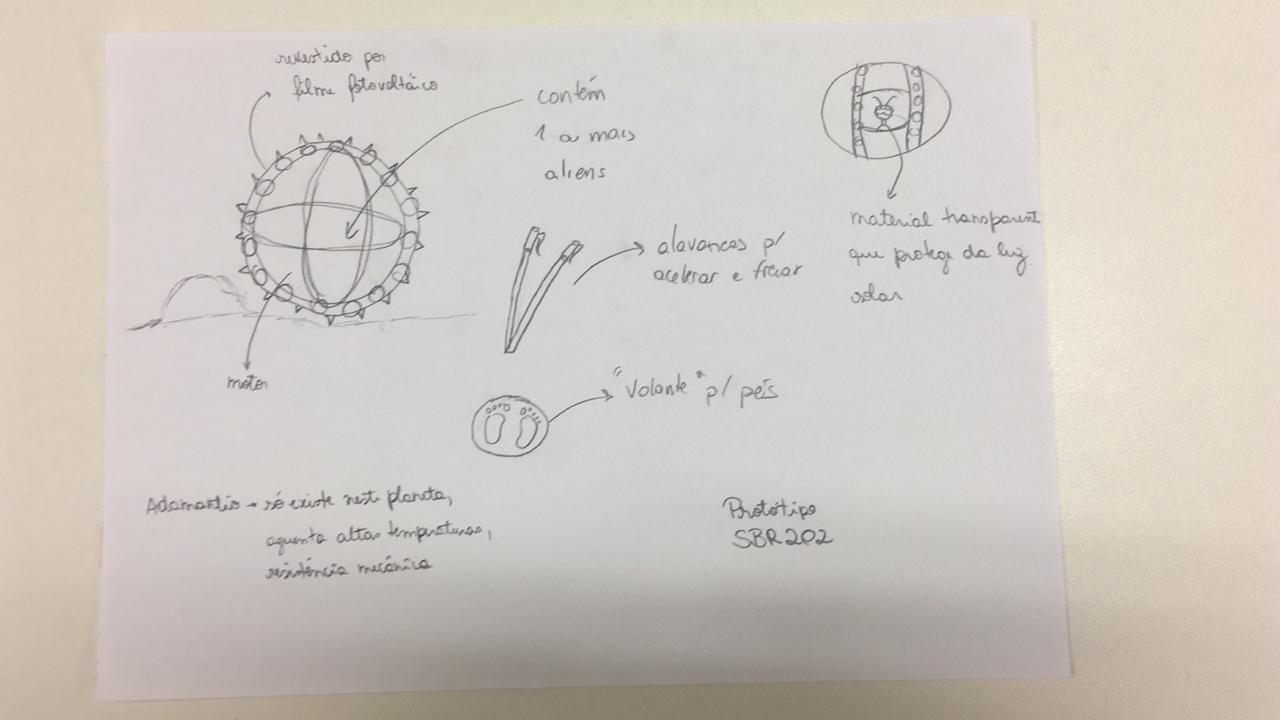 revestido por
filme fotovoltáico
contém
1 ou mais
aliens
motor
alavancas p/
acelerar e frear
"Volante" p/ pés
material transparent
que protege da luz
solar
Adamantio → só existe neste planeta,
aguenta altas temperaturas,
resistência mecânica
Protótipo
SBR202